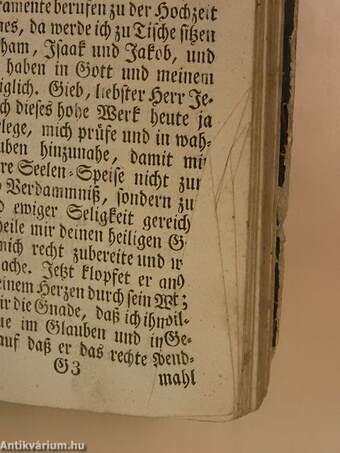 ramente berufen zu der Hochzeit
nes, da werde ich zu Tische sitzen
ham, Isaak und Jakob, und
haben in Gott und meinem
iglich. Gieb, liebster Herr Je-
ch dieses hohe Werk heute ja
lege, mich prüfe und in wah-
uben hinzunahe, damit mir
re Seelen-Speise nicht zur
Verdammniß, sondern zu
d ewiger Seligkeit gereich
heile mir deinen heiligen G
mich recht zubereite und w
ache. Jetzt klopfet er an
einem Herzen durch sein W
ir die Gnade, daß ich ihm
ue im Glauben und in Ge-
auf daß er das rechte
G3 mahl
Antikvárium.hu